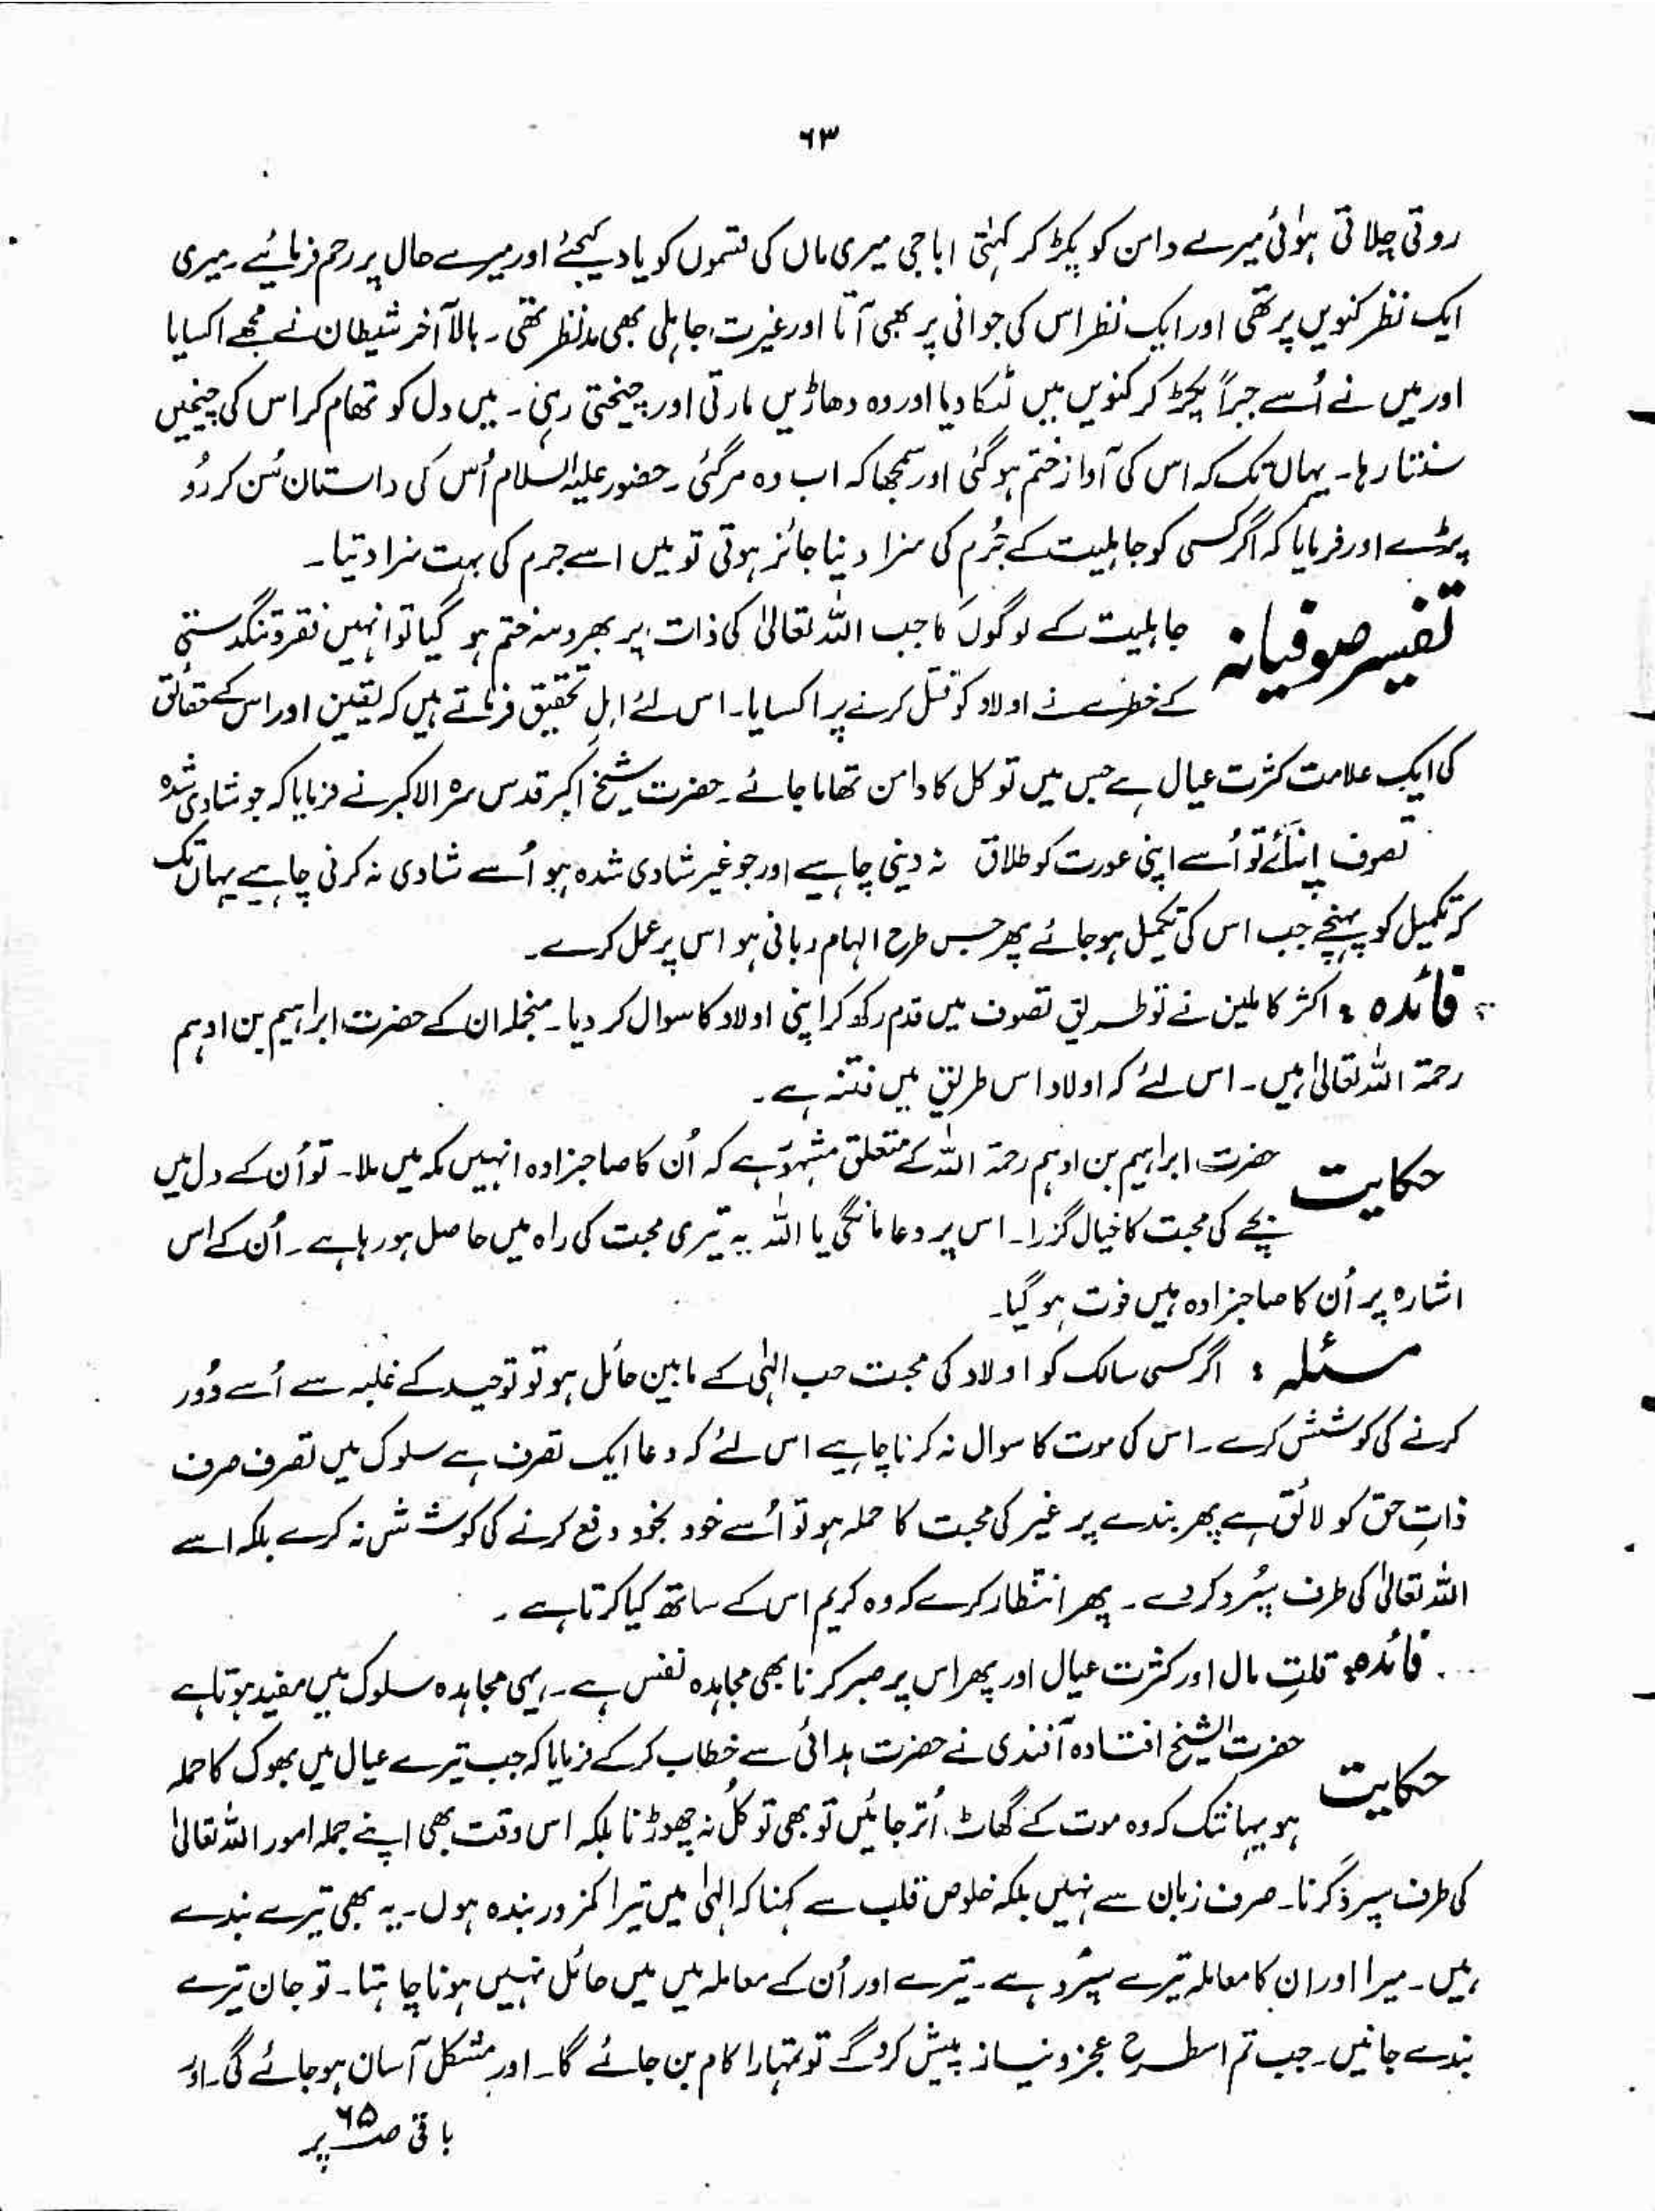 ۶۳
روتی چلاتی ہوئی میرے دامن کو پکڑ کر کہتی ابا جی میری ماں کی قسموں کو یاد کیجئے اور میرے حال پر رحم فرمائیے ۔ میری
ایک نظر کنویں پر تھی اور ایک نظر اس کی جوانی پر بھی آتا اور غیرت جاہلی بھی مدنظر تھی ۔ بالآخر شیطان نے مجھے اکسایا
اور میں نے اُسے جبراً پکڑ کر کنویں میں لٹکا دیا اور وہ دھاڑیں مارتی اور چیختی رہی ۔ میں دل کو تھام کر اس کی چیخیں
سنتا رہا ۔ یہاں تک کہ اس کی آواز ختم ہو گئی اور سمجھا کہ اب وہ مر گئی ۔ حضور علیہ السلام اُس کی داستان سُن کر رُو
پڑے اور فرمایا کہ اگر کسی کو جاہلیت کے جُرم کی سزا دینا جائز ہوتی تو میں اسے جرم کی بہت سزا دیتا ۔
تفسیر صوفیانہ جاہلیت کے لوگوں کا جب اللہ تعالیٰ کی ذات پر بھروسہ ختم ہو گیا تو انہیں فقر و تنگدستی
کے خطرے نے اولاد کو قتل کرنے پر اکسایا ۔ اس لئے اہل تحقیق فرماتے ہیں کہ یقین اور اس کے حقائق
کی ایک علامت کثرت عیال ہے جس میں توکل کا دامن تھاما جائے ۔ حضرت شیخ اکبر قدس سرہ الاکبر نے فرمایا کہ جو شادی شدہ
تصوف اپنائے تو اُسے اپنی عورت کو طلاق نہ دینی چاہیے اور جو غیر شادی شدہ ہو اُسے شادی نہ کرنی چاہیے یہاں تک
کہ تکمیل کو پہنچے جب اس کی تکمیل ہو جائے پھر جس طرح الہام ربانی ہو اس پر عمل کرے ۔
فائدہ : اکثر کاملین نے تو طریق تصوف میں قدم رکھ کر اپنی اولاد کا سوال کر دیا ۔ منجملہ ان کے حضرت ابراہیم بن ادہم
رحمۃ اللہ تعالیٰ ہیں ۔ اس لئے کہ اولاد اس طریق میں فتنہ ہے ۔
حکایت حضرت ابراہیم بن ادہم رحمۃ اللہ کے متعلق مشہور ہے کہ اُن کا صاحبزادہ انہیں مکہ میں ملا ۔ تو اُن کے دل میں
بچے کی محبت کا خیال گزرا ۔ اس پر دعا مانگی یا اللہ یہ تیری محبت کی راہ میں حاصل ہو رہا ہے ۔ اُن کے اس
اشارہ پر اُن کا صاحبزادہ وہیں فوت ہو گیا ۔
مسئلہ : اگر کسی سالک کو اولاد کی محبت حب الٰہی کے مابین حائل ہو تو توحید کے غلبہ سے اُسے دُور
کرنے کی کوشش کرے ۔ اس کی موت کا سوال نہ کرنا چاہیے اس لئے کہ دعا ایک تصرف ہے سلوک میں تصرف صرف
ذاتِ حق کو لائق ہے پھر بندے پر غیر کی محبت کا حملہ ہو تو اُسے خود بخود دفع کرنے کی کوشش نہ کرے بلکہ اسے
اللہ تعالیٰ کی طرف سپُرد کر دے ۔ پھر انتظار کرے کہ وہ کریم اس کے ساتھ کیا کرتا ہے ۔
فائدہ : قلتِ مال اور کثرت عیال اور پھر اس پر صبر کرنا بھی مجاہدہ نفس ہے ۔ یہی مجاہدہ سلوک میں مفید ہوتا ہے
حکایت حضرت الشیخ افتادہ آفندی نے حضرت ہدائی سے خطاب کر کے فرمایا کہ جب تیرے عیال میں بھوک کا حملہ
ہو یہانتک کہ وہ موت کے گھاٹ اُتر جائیں تو بھی توکل نہ چھوڑنا بلکہ اس وقت بھی اپنے جملہ امور اللہ تعالیٰ
کی طرف سپرد کرنا ۔ صرف زبان سے نہیں بلکہ خلوص قلب سے کہنا کہ الٰہی میں تیرا کمزور بندہ ہوں ۔ یہ بھی تیرے بندے
ہیں ۔ میرا اور ان کا معاملہ تیرے سپُرد ہے ۔ تیرے اور اُن کے معاملہ میں میں حائل نہیں ہونا چاہتا ۔ تو جان تیرے
بندے جانیں ۔ جب تم اسطرح عجز و نیاز پیش کرو گے تو تمہارا کام بن جائے گا ۔ اور مشکل آسان ہو جائے گی ۔ اور
باقی صـ ۶۵ پر